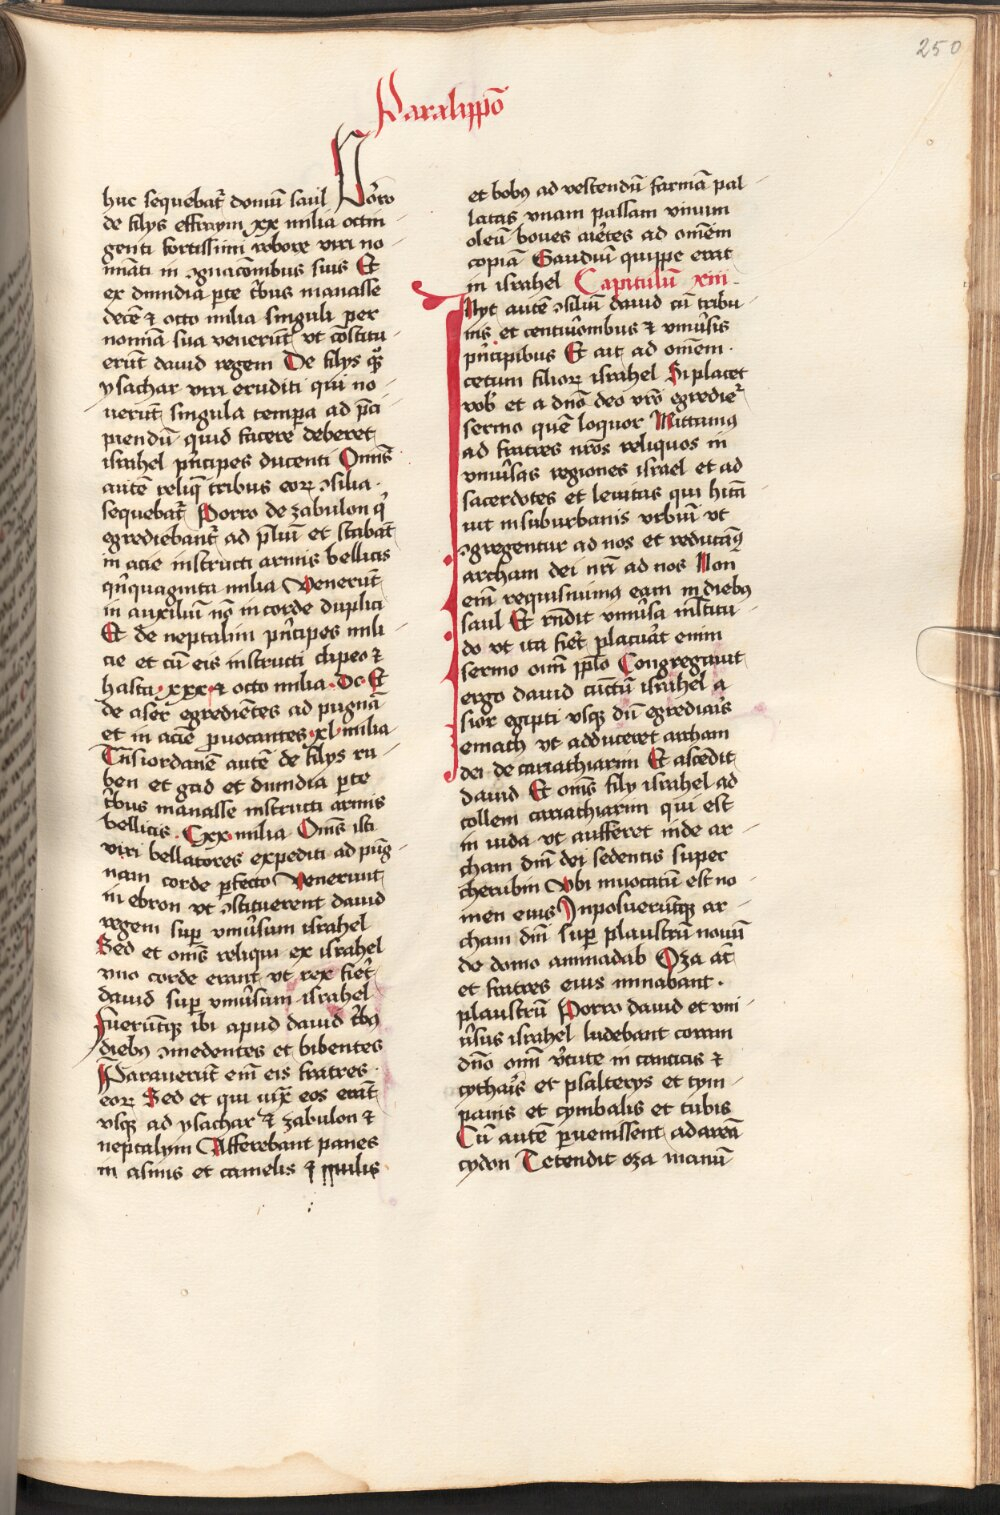 250
Paralippō
huc sequebat̄ domū saul Porro
de filys effraym xx milia octin
genti fortissimi robore viri no
minati in ꝯgnacōnibus suis Et
ex dimidia ꝑte tribus manasse
decē ⁊ octo milia singuli per
nomīa sua venerūt vt cōstitu
erūt dauid regem De filys qꝫ
ysachar viri eruditi qui no
uerūt singula tempa ad p̄ci
piendū quid facere deberet
israhel pͥncipes ducenti Omīs
autē reliq̄ tribus eoꝝ ꝯsilia
sequebat̄ Porro de zabulon qͥ
egrediebant̄ ad p̄liū et stabāt
in acie instructi armis bellicis
qͥnquaginta milia Venerūt
in auxiliū nō in corde duplici
Et de neptalim pͥncipes mili
cie et cū eis instructi clipeo ⁊
hasta xxx ⁊ octo milia De Et
de aser egrediētes ad pugnā
et in aciē ꝓuocantes xl milia
Trāsiordanē autē de filys ru
ben et gad et dimidia ꝑte
tͥbus manasse instructi armis
bellicis Cxx milia Omīs isti
viri bellatores expediti ad pūg
nam corde ꝑfecto Venerunt
in ebron vt ꝯstituerent dauid
regem suꝑ vniu̾sum israhel
Sed et omīs reliqui ex israhel
vno corde erant vt rex fieret
dauid suꝑ vniu̾sum israhel
Fueruntqꝫ ibi apud dauid tͥbꝰ
diebꝰ ꝯmedentes et bibentes
Parauerūt em̄ eis fratres
eoꝝ Sed et qui iux̄ eos erāt
vsqꝫ ad ysachar ⁊ zabulon ⁊
neptalym Afferebant panes
in asinis et camelis ⁊ mulis
et bobꝰ ad vescendū farinā pal
latas vuam passam vinum
oleū boues arietes ad omēm
copiā Gaudiū quippe erat
in israhel Capitulū xiii
Inyt autē ꝯsiliū dauid cū tribu
nis et centurionibus ⁊ vniu̾sis
pͥncipibus Et ait ad omēm
cetum filioꝝ israhel Si placet
vob̄ et a dn̄o deo vr̄o egredie̾
sermo quē loquor Mittamꝰ
ad fratres nr̄os reliquos in
vniu̾sas regiones israel et ad
sacerdotes et leuitas qui hītā
nt in suburbanis vrbiū vt
ꝯgregentur ad nos et reducāꝰ
archam dei nr̄i ad nos Non
em̄ requisiuimꝰ eam in diebꝰ
saul Et rn̄dit vniu̾sa m̄ltitu
do vt ita fieret placuāt enim
sermo om̄i ppl̄o Congregauit
ergo dauid cūctū israhel a
sior egipti vsqꝫ dū egrediāis
emath vt adduceret archam
dei de cariathiarim Et ascēdit
dauid Et omīs fily israhel ad
collem cariathiarim qui est
in iuda vt aufferet inde ar
cham dn̄i dei sedentis super
cherubin Vbi inuocatū est no
men eius Inposuerūtqꝫ ar
cham dn̄i suꝑ plaustrū nouū
de domo aminadab Oza āt
et fratres eius minabant
plaustrū Porro dauid et vni
u̾sus israhel ludebant coram
dn̄o om̄i v̾tute in canticis ⁊
cytharis et psalterys et tym
panis et cymbalis et tubis
Cū autē ꝑuenissent ad areā
cydon Tetendit oza manū